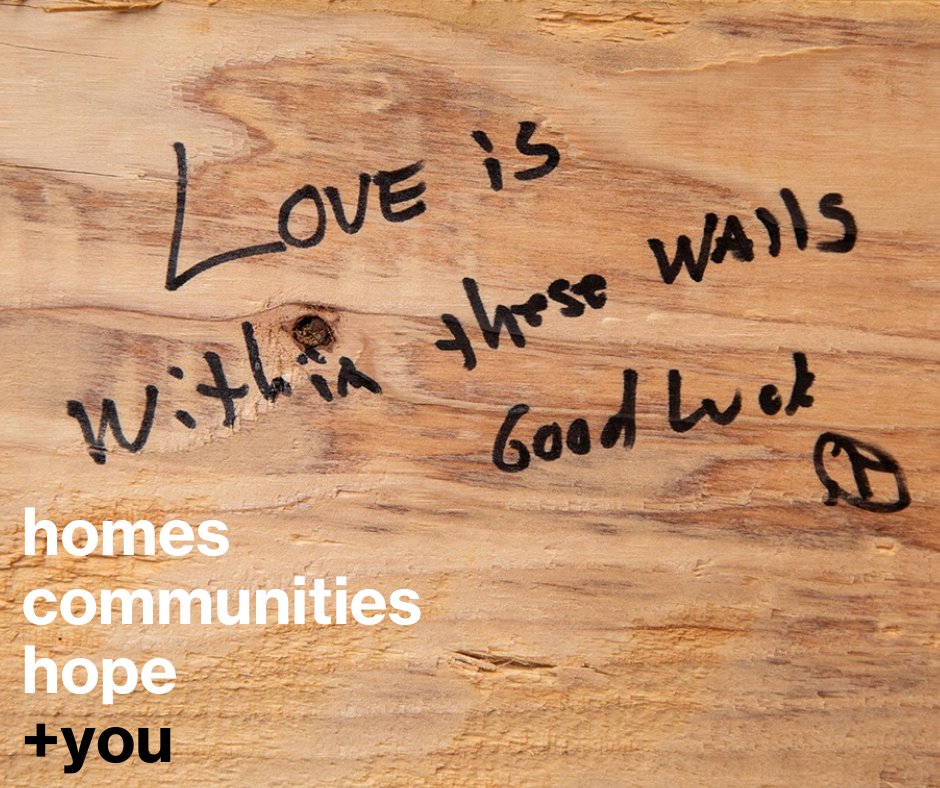 Love is
Within these walls
Good Luck
homes
communities
hope
+you